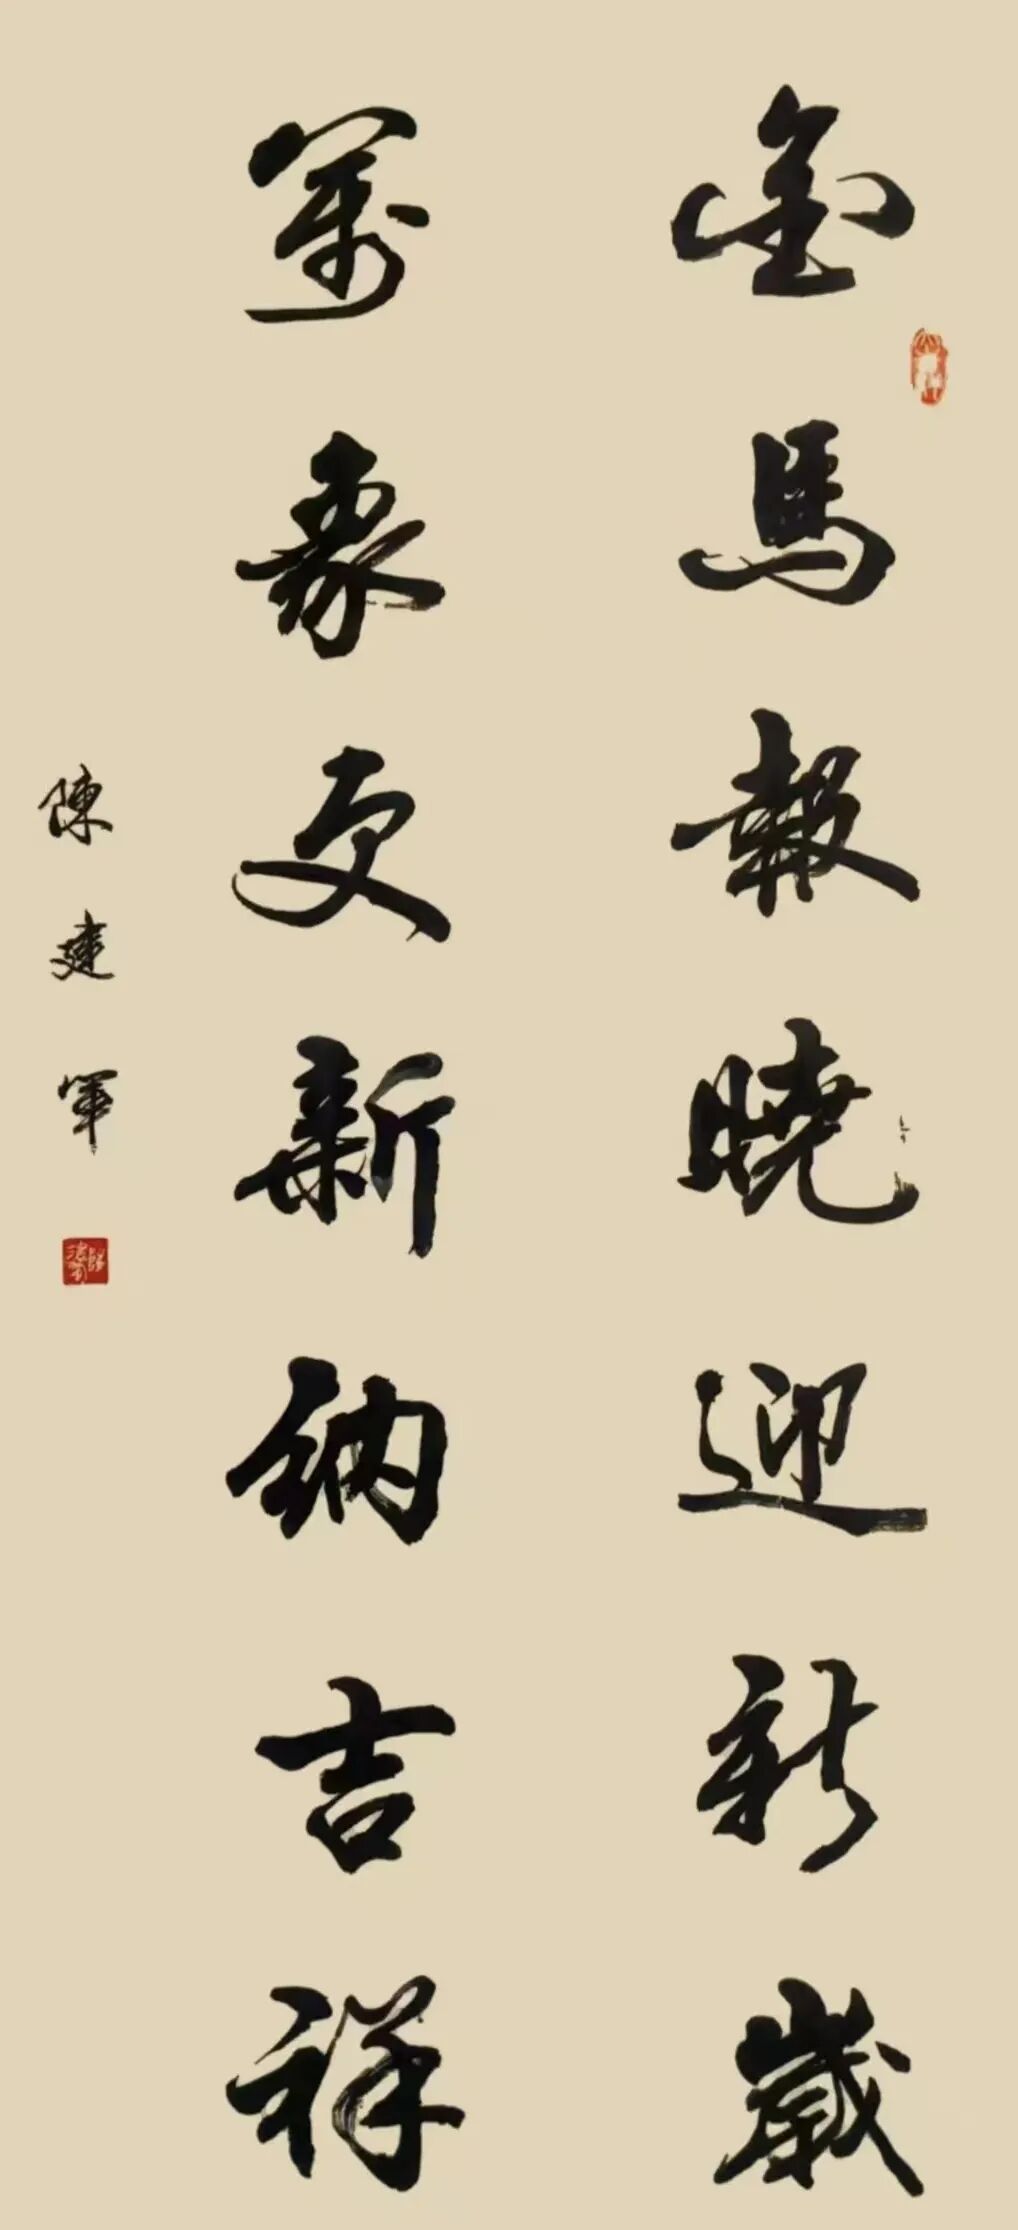 金馬報曉迎新歲
萬象更新納吉祥
陳建軍